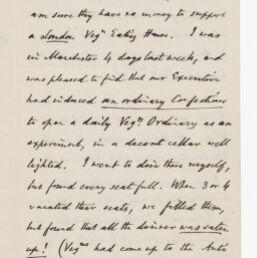 am sure they have no money to support
a London Vegn Eating House. I was
in Manchester 4 days last week, and
was pleased to find that our Executive
had induced an ordinary Confectioner
to open a daily Vegn Ordinary as an
experiment, in a decent cellar well
lighted. I went to dine there myself,
but found every seat full. When 3 or 4
vacated their seats, we filled them,
but found that all the dinner was eaten
up! (Vegns had come up to the Anti